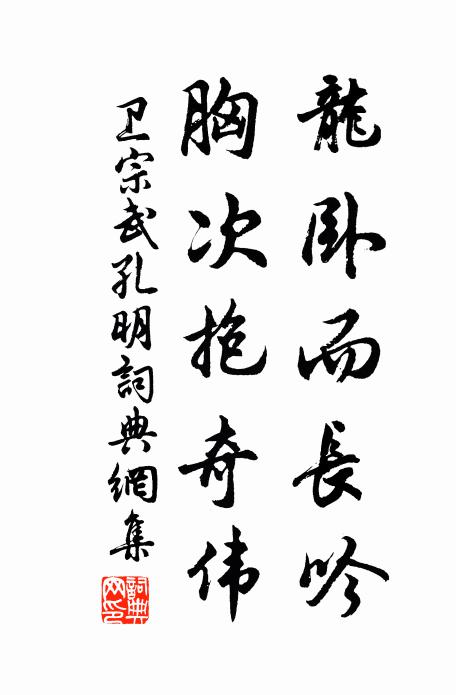 龍卧而長吟
胸次抱奇伟
卫宗武孔明詞典網集
詞典網印